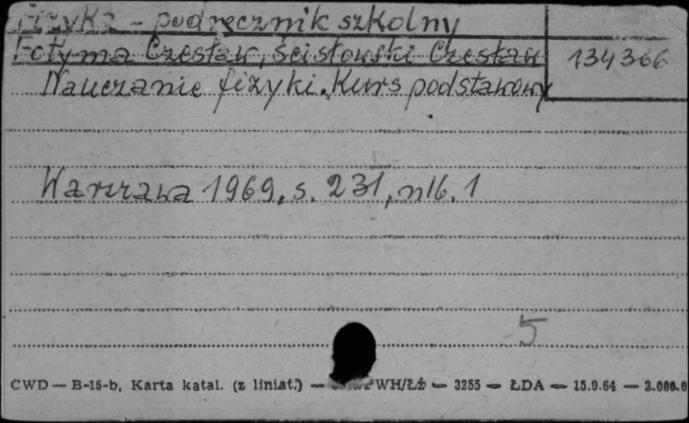 Fizyka - podręcznik szkolny
Fotyma Czesław, Ścisłowski Czesław
134366
Nauczanie fizyki. Kurs podstawowy
Warszawa 1969, s. 231, nlb. 1
5
CWD — B-15-b, Karta katal. (z liniat.) — WH/Łż — 3255 — ŁDA — 15.9.64 — 2.000.0